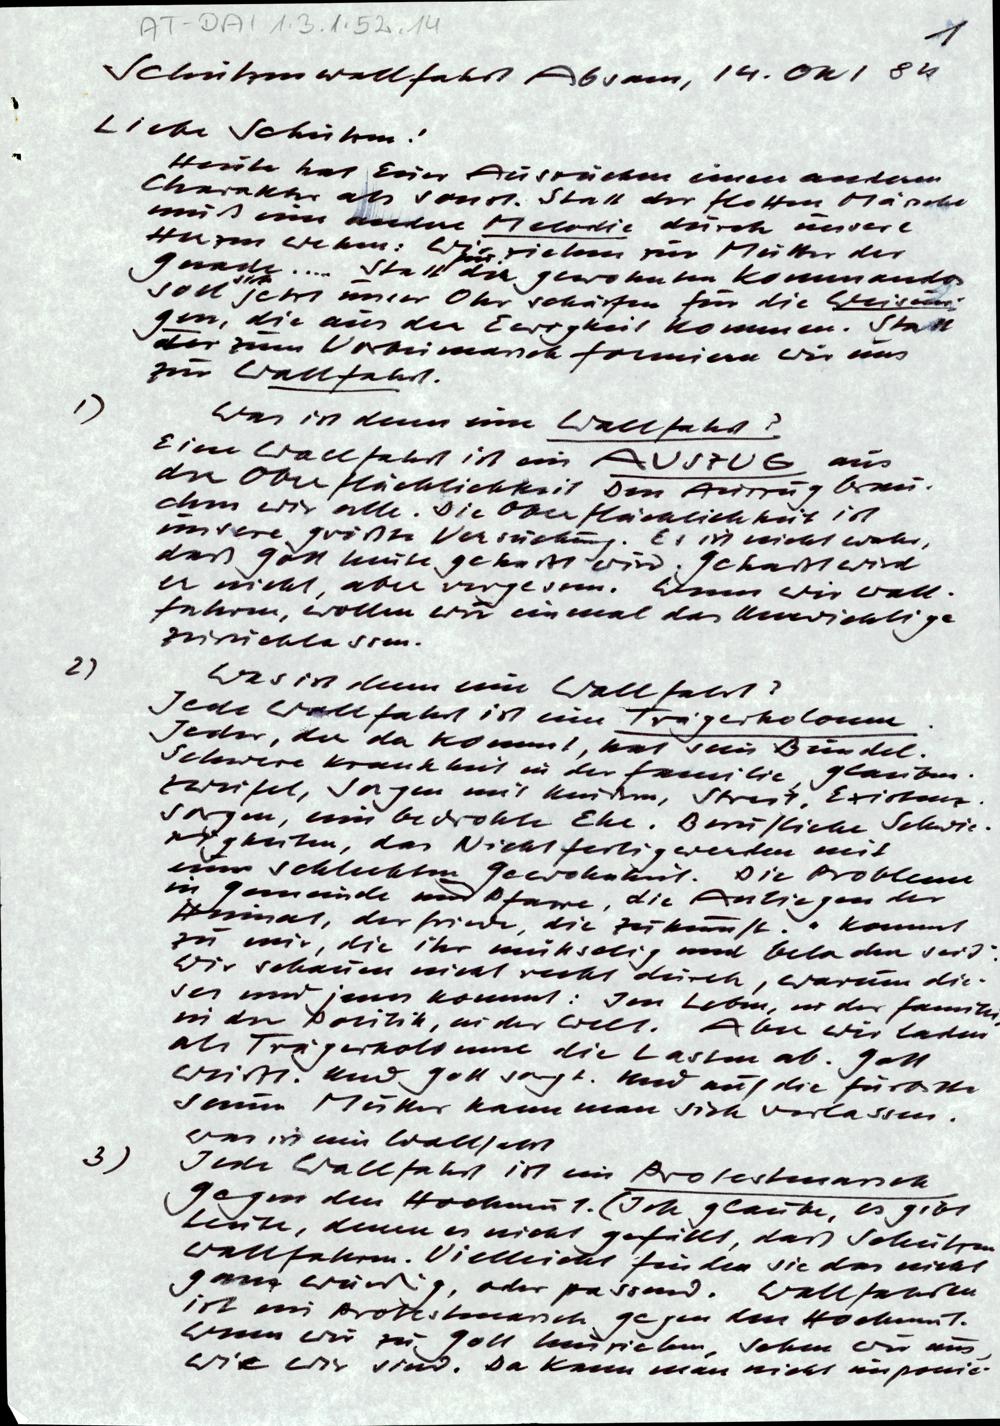 AT-DAI 1.3.1.52.14
1
Schützenwallfahrt Absam, 14. Okt 84
Liebe Schützen!
Heute hat Euer Ausrücken einen anderen
Charakter als sonst. Statt der flotten Märsche
muß eine andere Melodie durch unsere
Herzen wehen: Wir ziehen zur Mutter der
Gnade .... Statt für die gewohnten Kommandos
soll sich jetzt unser Ohr schärfen für die Weisun-
gen, die aus der Ewigkeit kommen. Statt
zum Vorbeimarsch formieren wir uns
zur Wallfahrt.
1)
Was ist denn eine Wallfahrt?
Eine Wallfahrt ist ein AUSZUG aus
der Oberflächlichkeit. Den Auszug brau-
chen wir alle. Die Oberflächlichkeit ist
unsere größte Versuchung. Es ist nicht wahr,
daß Gott heute gehaßt wird. Gehaßt wird
er nicht, aber vergessen. Wenn wir wall-
fahren, wollen wir einmal das Unwichtige
zurücklassen.
2)
Was ist denn eine Wallfahrt?
Jede Wallfahrt ist eine Trägerkolonne.
Jeder, der da kommt, hat sein Bündel.
Schwere Krankheit in der Familie, Glaubens-
zweifel, Sorgen mit Kindern, Streit, Existenz-
sorgen, eine bedrohte Ehe. Berufliche Schwie-
rigkeiten, das Nichtfertigwerden mit
einer schlechten Gewohnheit. Die Probleme
in Gemeinde und Pfarre, die Anliegen der
Heimat, der Friede, die Zukunft. "Kommt
zu mir, die ihr mühselig und beladen seid".
Wir schauen nicht recht durch, warum die-
ses und jenes kommt: Im Leben, in der Familie,
in der Politik, in der Welt. Aber wir laden
als Trägerkolonne die Lasten ab. Gott
weiß. Und Gott sorgt. Und auf die Fürbitte
seiner Mutter kann man sich verlassen.
Was ist ein Wallfahrt
3)
Jede Wallfahrt ist ein Protestmarsch
gegen den Hochmut. (Ich glaube, es gibt
Leute, denen es nicht gefällt, daß Schützen
wallfahren. Vielleicht finden sie das nicht
ganz würdig, oder passend. Wallfahrten
ist ein Protestmarsch gegen den Hochmut.
Wenn wir zu Gott hinziehen, sehen wir uns,
wie wir sind. Da kann man nicht imponie-